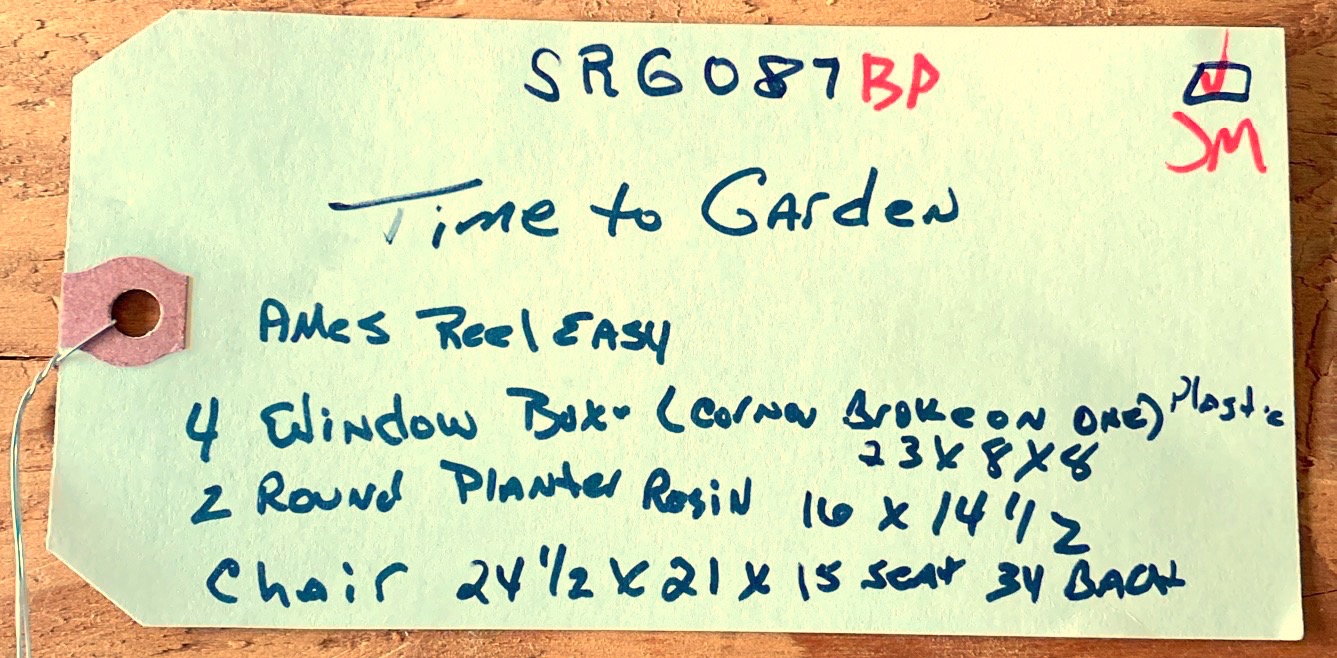 SRG087 BP
JM
Time to Garden
Ames Reel Easy
4 Window Box - (corner Broke on one) Plastic
23 X 8 X 8
2 Round Planter Rosin 16 x 14 1/2
Chair 24 1/2 X 21 X 15 seat 34 Back